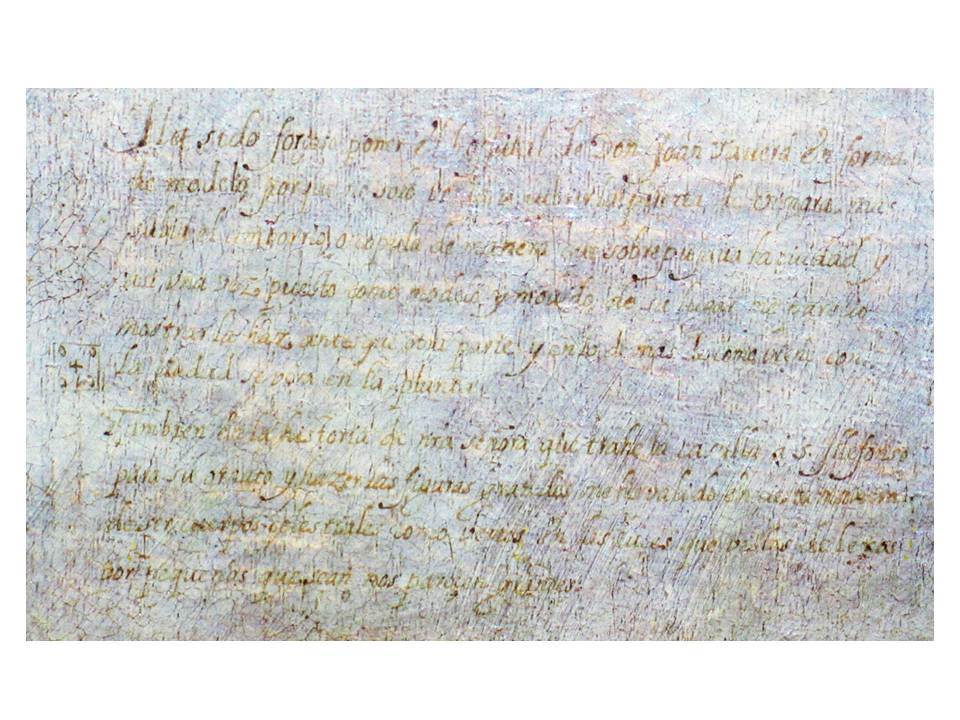 Ha sido forzoso poner el hospital de Don Joan Tavera en forma
de modelo porque no solo benia a cubrir la puerta de visagra mas
subia el cimborrio o copula de manera que sobrepujaua la ciudad y
asi una vez puesto como modelo y mouido de su lugar me parecio
mostrar la haz antes que otra parte y en lo demas de como viene con
la ciudad se vera en la planta.
Tambien en la historia de nra señora que trahe la casulla a S. Illefonso
para su ornato y hazer las figuras grandes me he valido en cierta manera
de ser cuerpos celestiales como vemos en las luces que vistas de lexos
por pequeñas que sean nos parecen grandes.